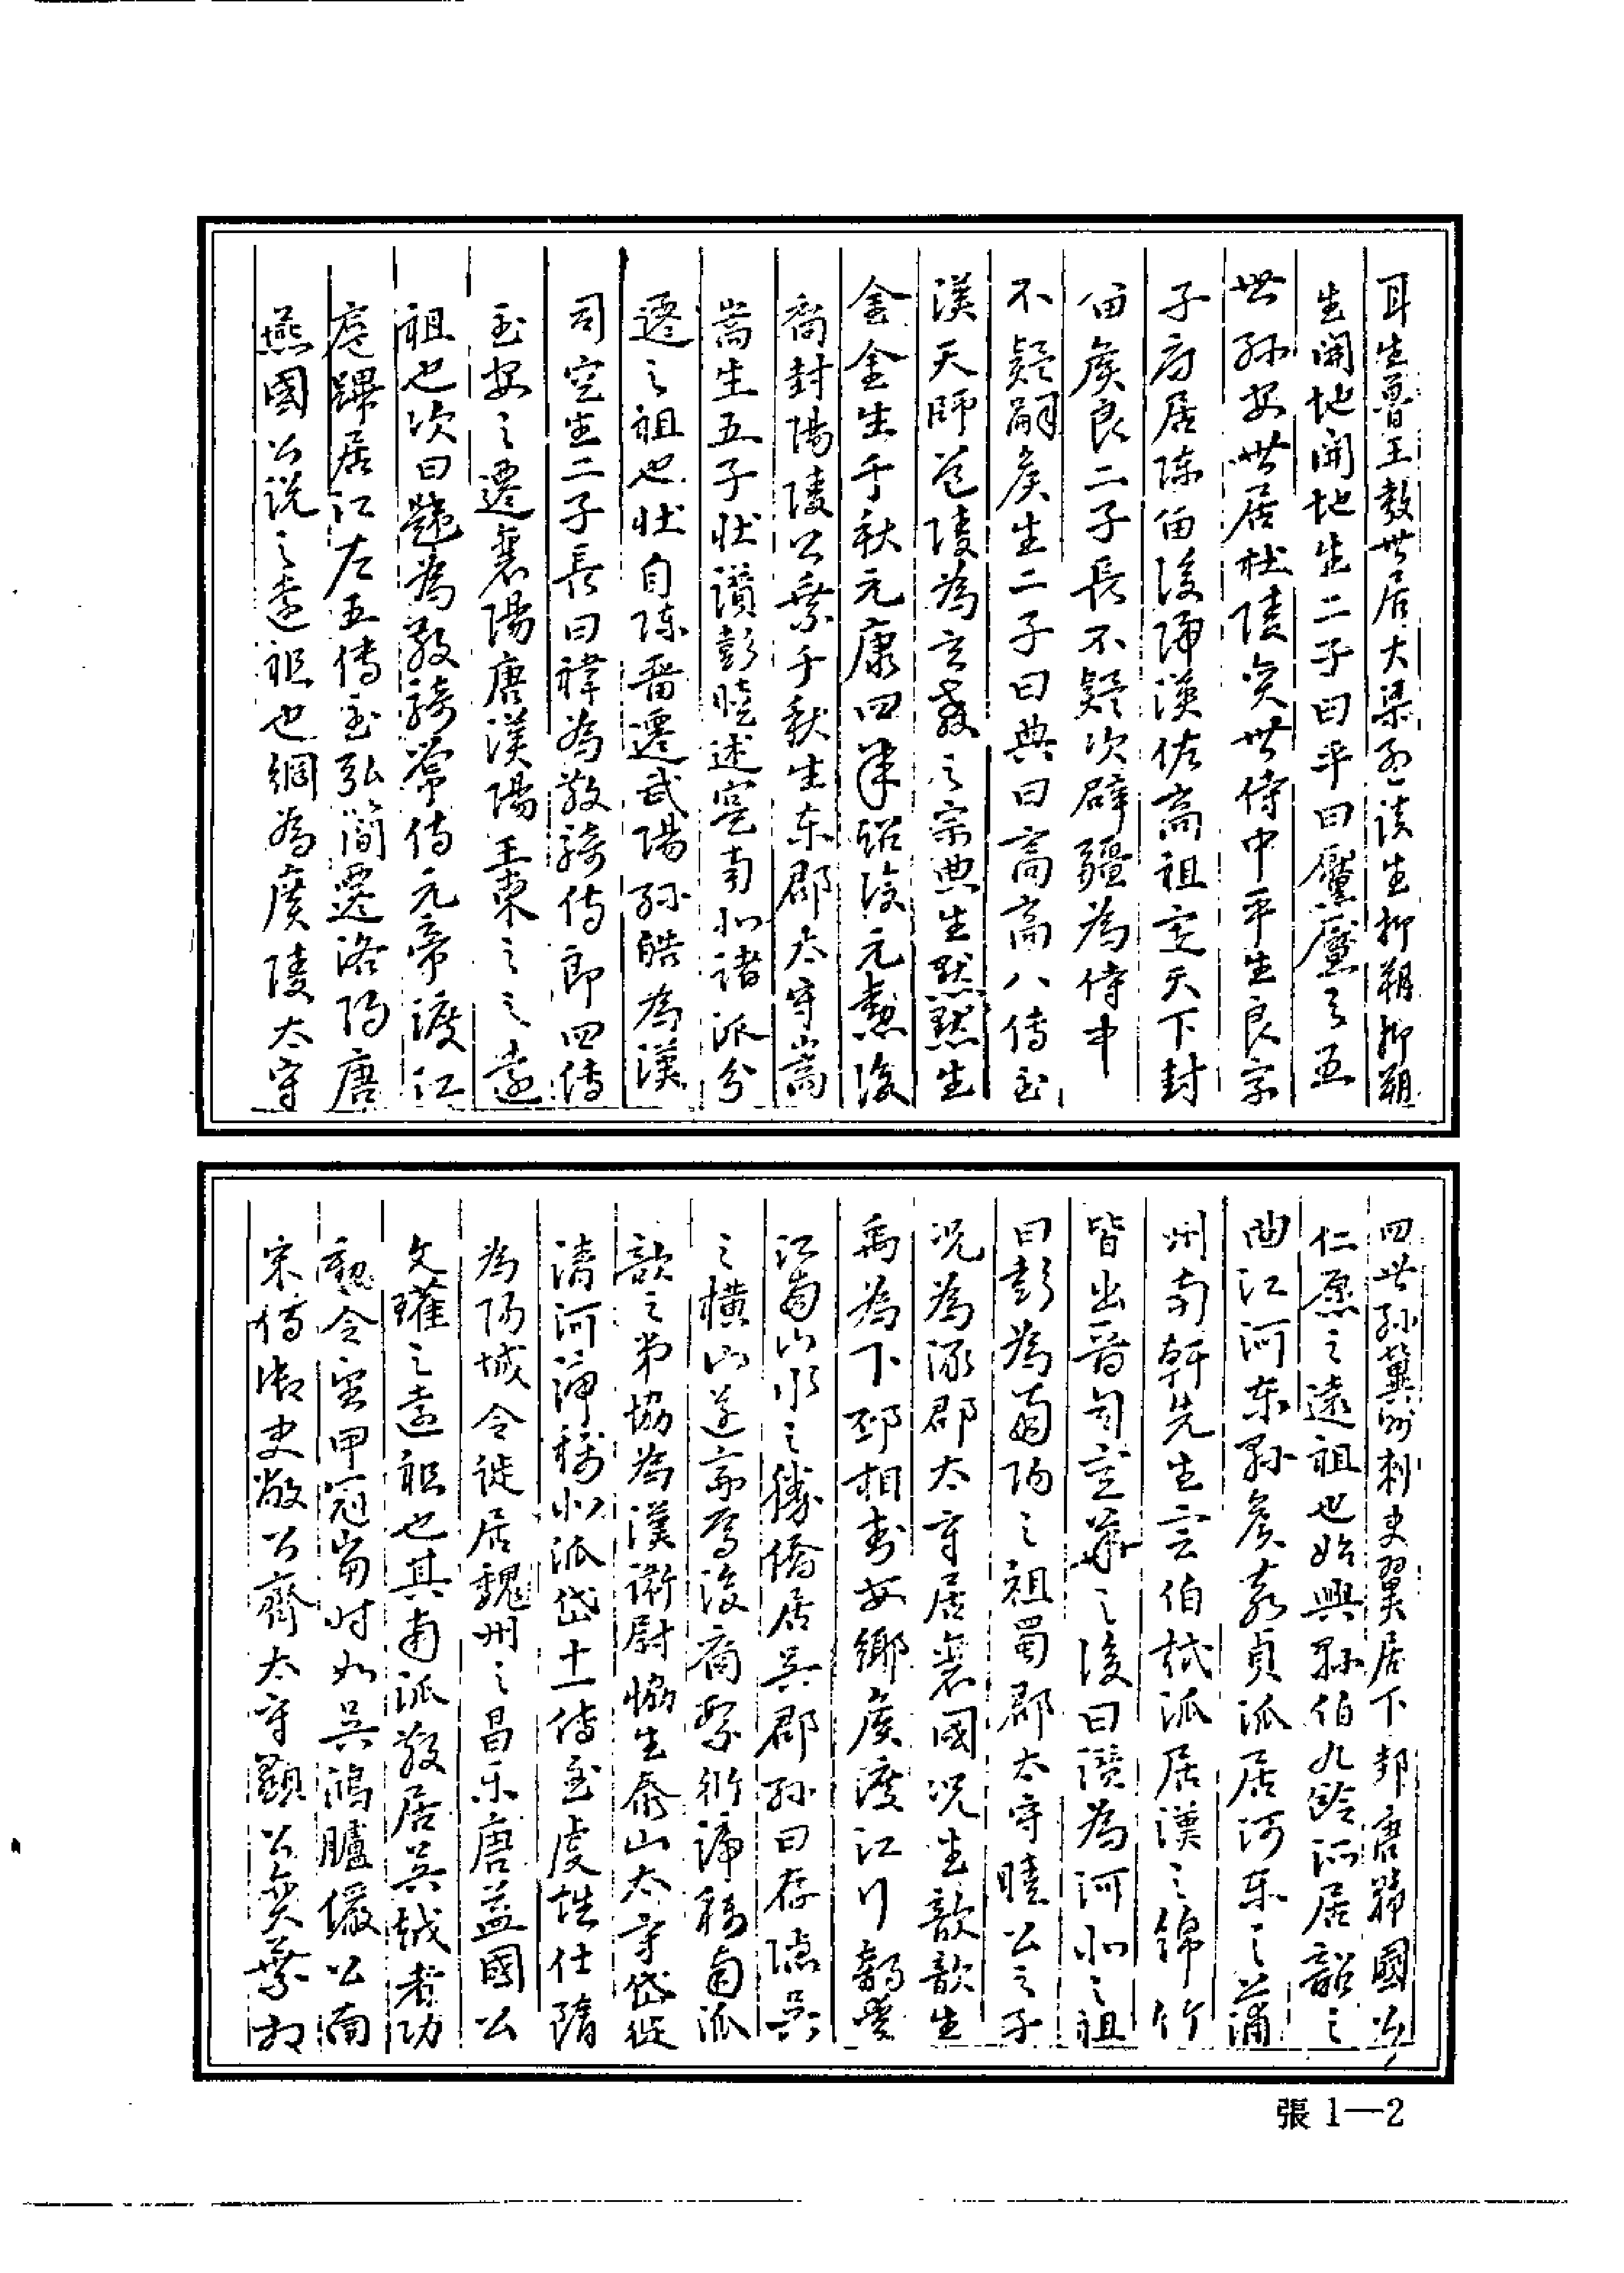 耳生魯王敖世居大梁敖談生抑朔抑朔
生開地開地生二子曰平曰靨靨之五
世孫安世居杜陵矣世侍中平生良字
子房居陳留後歸漢佐高祖定天下封
留矦良二子長不疑次辟疆為侍中
不疑嗣矦生二子曰典曰高高八傳至
漢天師道陵為玄教之宗典生默默生
金金生千秋元康四年詔復元勲後
裔封陽陵公乗千秋生东郡太守嵩
嵩生五子壯讚彭睦述寔南北諸派分
遷之祖也壯自陈畱遷武陽孫皓為漢
司空生二子長曰禕為散騎侍郎四傳
至安之遷襄陽唐漢陽王柬之之遠
祖也次曰韙為散騎常侍元帝渡江
扈蹕居江左五傳至弘簡遷洛陽唐
燕國公說之遠祖也綱為廣陵太守
四世孫冀州刺史翼居下邽唐歸國公
仁愿之遠祖也始興縣伯九齡派居韶之
曲江河东縣矦嘉貞派居河东之蒲
州南軒先生言伯栻派居漢之綿竹
皆出晉司空華之後曰讚為河北之祖
曰彭為南陽之祖蜀郡太守睦公之子
况為涿郡太守居襄國况生歆歆生
禹為下邳相封女鄉矦渡江
江南山水之勝僑居吳郡孫曰存隱吳
之橫山遂家焉後裔繁衍諦稱南派
歆之弟協為漢衛尉協生泰山太守岱從
清河諦稱北派岱十一傳至虔雄仕隋
為陽城令徙居魏州之昌乐唐益國公
文瓘之遠祖也其南派散居吳越者功
勲令望甲冠當时如吳鴻臚儼公南
宋侍御史敞公齊太守顯公奕葉相
張1—2